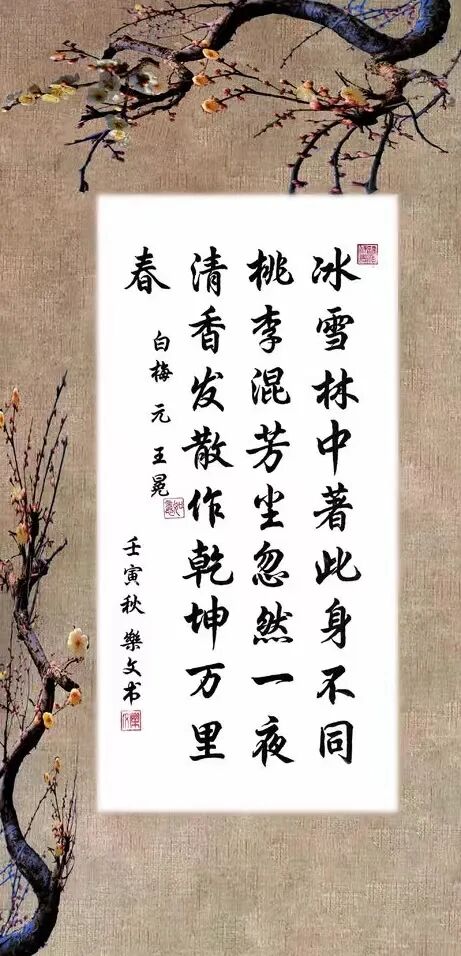 冰雪林中著此身不同
桃李混芳尘忽然一夜
清香发散作乾坤万里
春
白梅 元 王冕
壬寅秋 樂文书